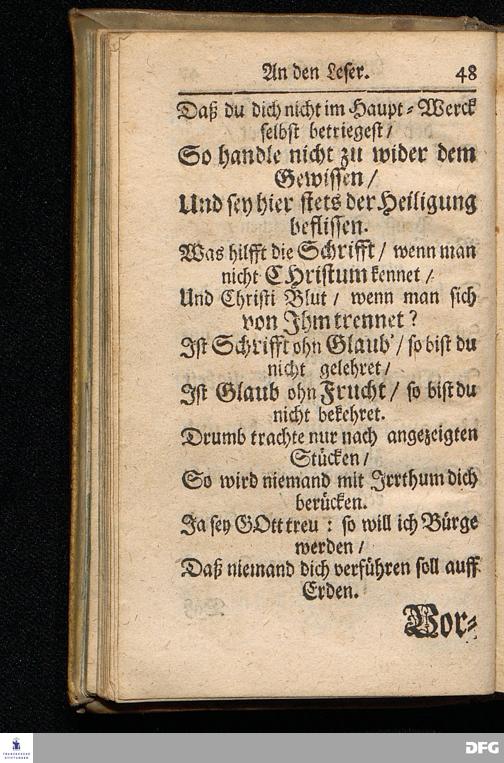 An den Leser. 48
Daß du dich nicht im Haupt-Werck
selbst betriegest/
So handle nicht zu wider dem
Gewissen/
Und sey hier stets der Heiligung
beflissen.
Was hilfft die Schrifft/ wenn man
nicht CHristum kennet/
Und Christi Blut/ wenn man sich
von Ihm trennet?
Ist Schrifft ohn Glaub'/ so bist du
nicht gelehret/
Ist Glaub ohn Frucht/ so bist du
nicht bekehret.
Drumb trachte nur nach angezeigten
Stücken/
So wird niemand mit Irrthum dich
berücken.
Ja sey GOtt treu: so will ich Bürge
werden/
Daß niemand dich verführen soll auff
Erden.
Vor-
FRANCKESCHE
STIFTUNGEN
DFG